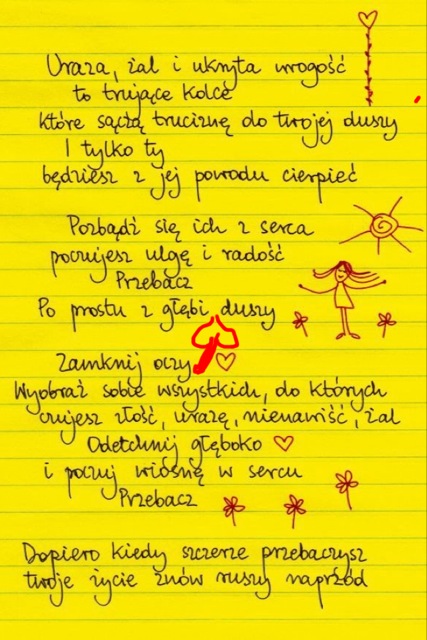 Uraza, żal i ukryta wrogość
to trujące kolce
które sączą truciznę do twojej duszy
I tylko ty
będziesz z jej powodu cierpieć
Pozbądź się ich z serca
poczujesz ulgę i radość
Przebacz
Po prostu z głębi duszy
Zamknij oczy
Wyobraź sobie wszystkich, do których
czujesz złość, urazę, nienawiść, żal
Odetchnij głęboko
i poczuj wiosnę w sercu
Przebacz
Dopiero kiedy szczerze przebaczysz
twoje życie znów ruszy naprzód